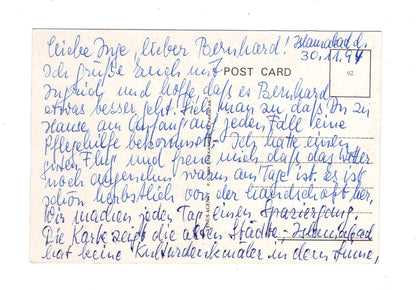 Liebe Inge, lieber Bernhard! Islamabad d.
30.11.94
Ich grüße Euch mit
POST CARD
92
Ingrid und hoffe, daß es Bernhard
etwas besser geht. Sieh man zu daß Du zu
Hause am Anfang auf jeden Fall eine
Pflegehilfe bekommst. Ich hatte einen
guten Flug und freue mich, daß das Wetter
noch angenehm warm am Tage ist. Es ist
schon herbstlich von der Landschaft her.
Wir machen jeden Tag einen Spaziergang.
Die Karte zeigt die alten Städte, Islamabad
hat keine Kulturdenkmäler in dem Sinne,